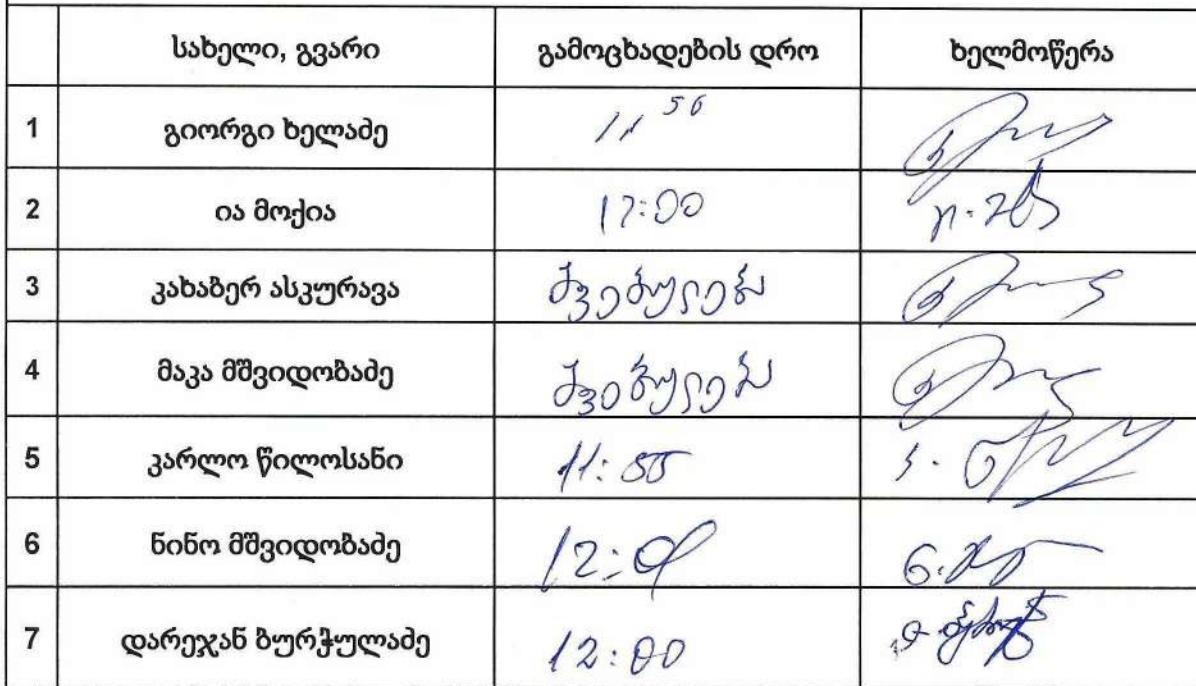 სახელი, გვარი გამოცხადების დრო ხელმოწერა
1 გიორგი ხელაძე 11 56
2 ია მოქია 12:00
3 კახაბერ ასკურავა შვებულება
4 მაკა მშვიდობაძე შვებულება
5 კარლო წილოსანი 11:55
6 ნინო მშვიდობაძე
7 დარეჯან ბურჭულაძე 12:00